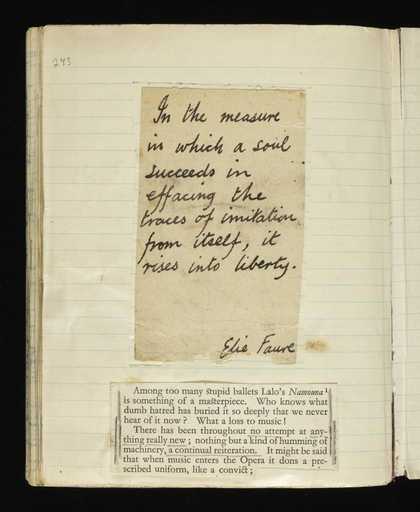 243
In the measure
in which a soul
succeeds in
effacing the
traces of imitation
from itself, it
rises into liberty.
Elie Faure
Among too many stupid ballets Lalo's Namouna¹
is something of a masterpiece. Who knows what
dumb hatred has buried it so deeply that we never
hear of it now? What a loss to music!
There has been throughout no attempt at any-
thing really new; nothing but a kind of humming of
machinery, a continual reiteration. It might be said
that when music enters the Opera it dons a pre-
scribed uniform, like a convict;